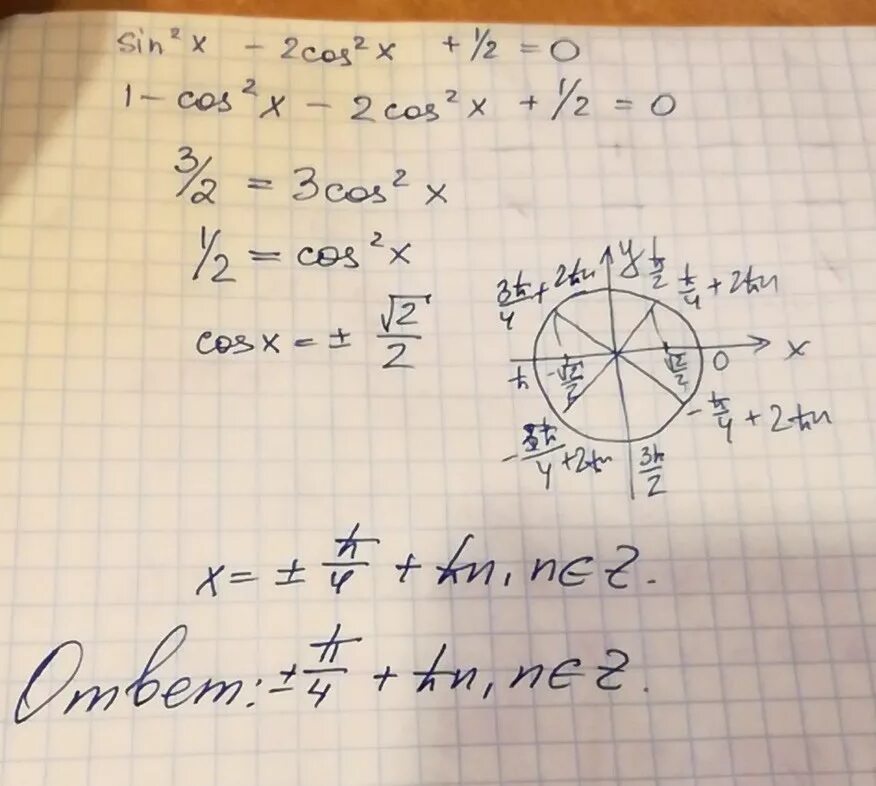 sin²x - 2cos²x + 1/2 = 0
1 - cos²x - 2cos²x + 1/2 = 0
3/2 = 3cos²x
1/2 = cos²x
cosx = ± √2/2
y π/2
3π/4 + 2πn
π/4 + 2πn
π -√2/2 √2/2 0 x
-π/4 + 2πn
-3π/4 + 2πn
3π/2
x = ± π/4 + πn, n∈Z.
Ответ: ± π/4 + πn, n∈Z.